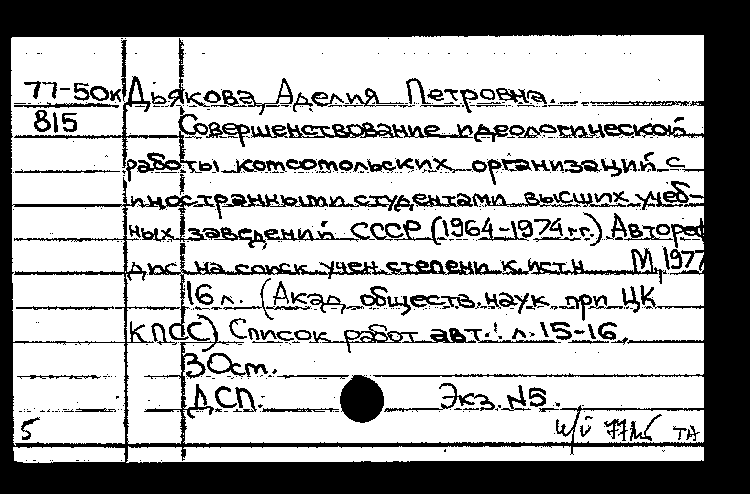 77-50к Дьякова, Аделия Петровна.
815 Совершенствование идеологической
работы комсомольских организаций с
иностранными студентами высших учеб-
ных заведений СССР (1964-1974гг.) Автореф
дис. на соиск. учен. степени к. ист. н М., 1977
16 л. (Акад. обществ. наук при ЦК
КПСС) Список работ авт.: л. 15-16,
30ст.
ДСП. Экз. №5.
5 ТА